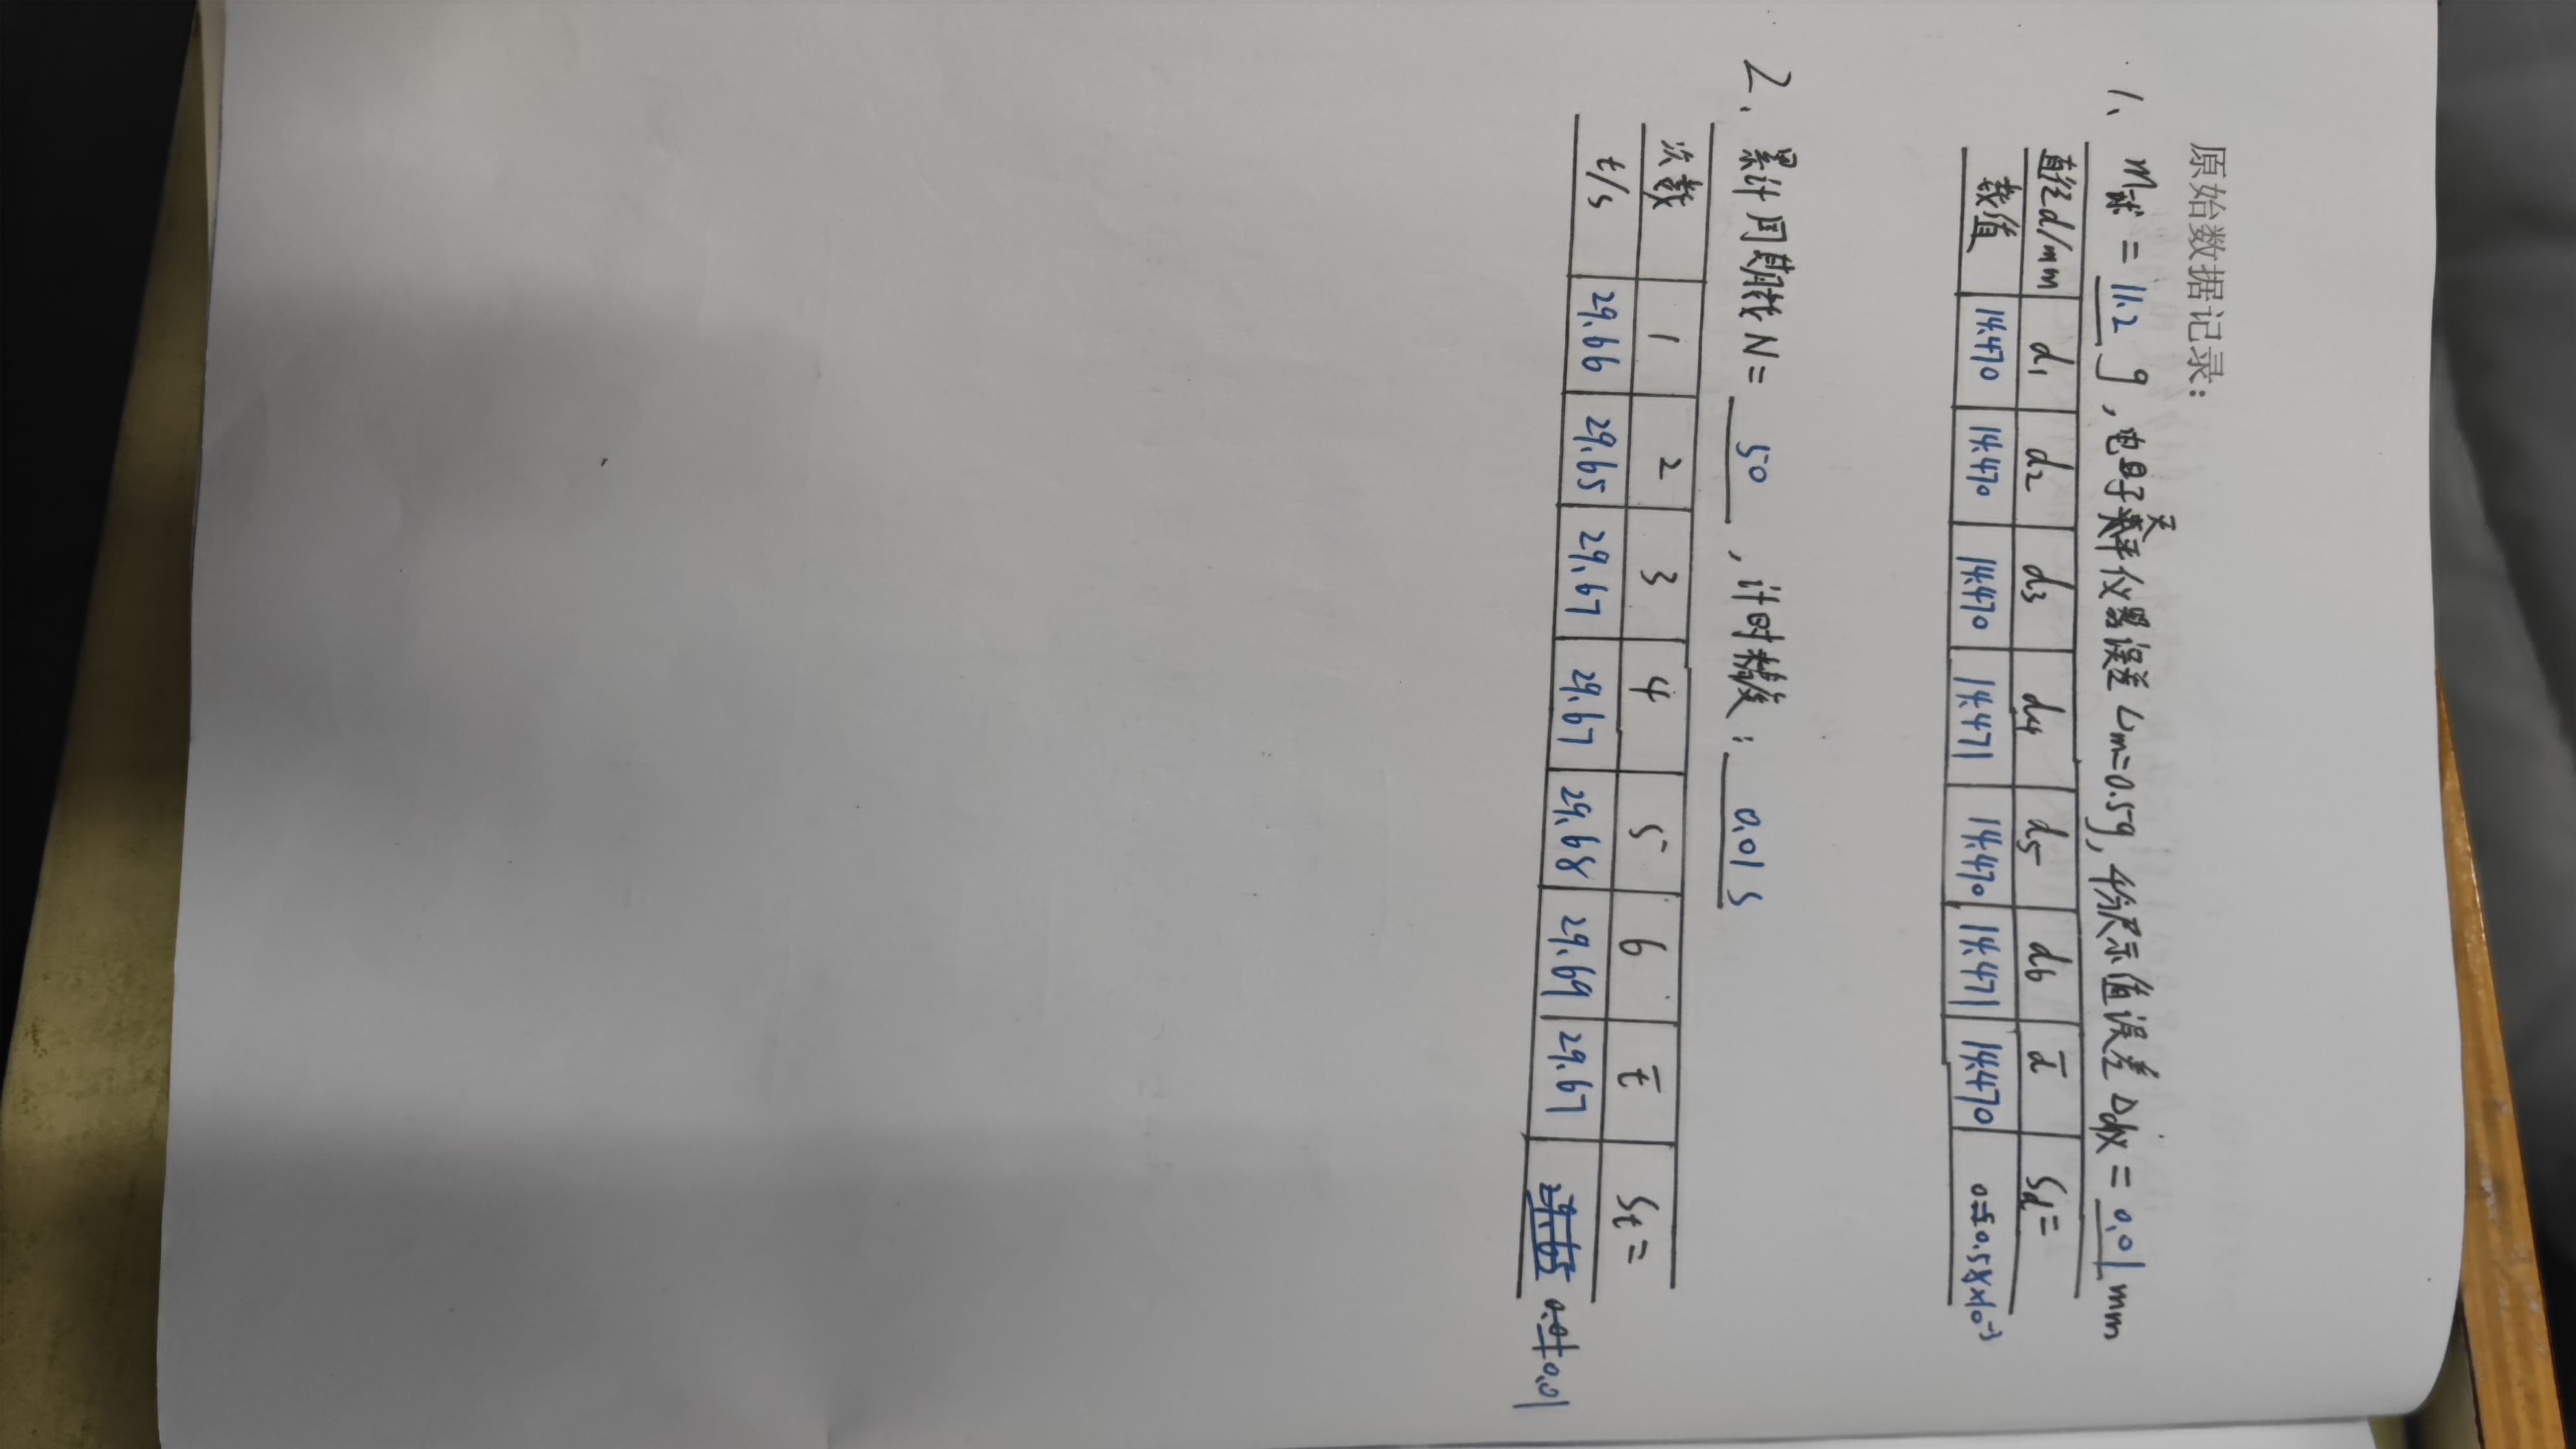 原始数据记录:
1、m球 = 11.2 g，电子天平仪器误差 △m=0.5g，千分尺示值误差 △dx = 0.01 mm
直径d/mm d1 d2 d3 d4 d5 d6 d̄ Sd=
数值 14.470 14.470 14.470 14.471 14.470 14.471 14.470 0.5×10⁻³
2、累计周期数N= 50 ，计时精度：0.01 s
次数 1 2 3 4 5 6 t̄ St=
t/s 29.66 29.65 29.67 29.67 29.68 29.69 29.67 0.01